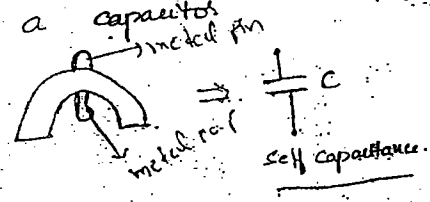 a capacitos
metal pin
C
metal part
self capacitance.